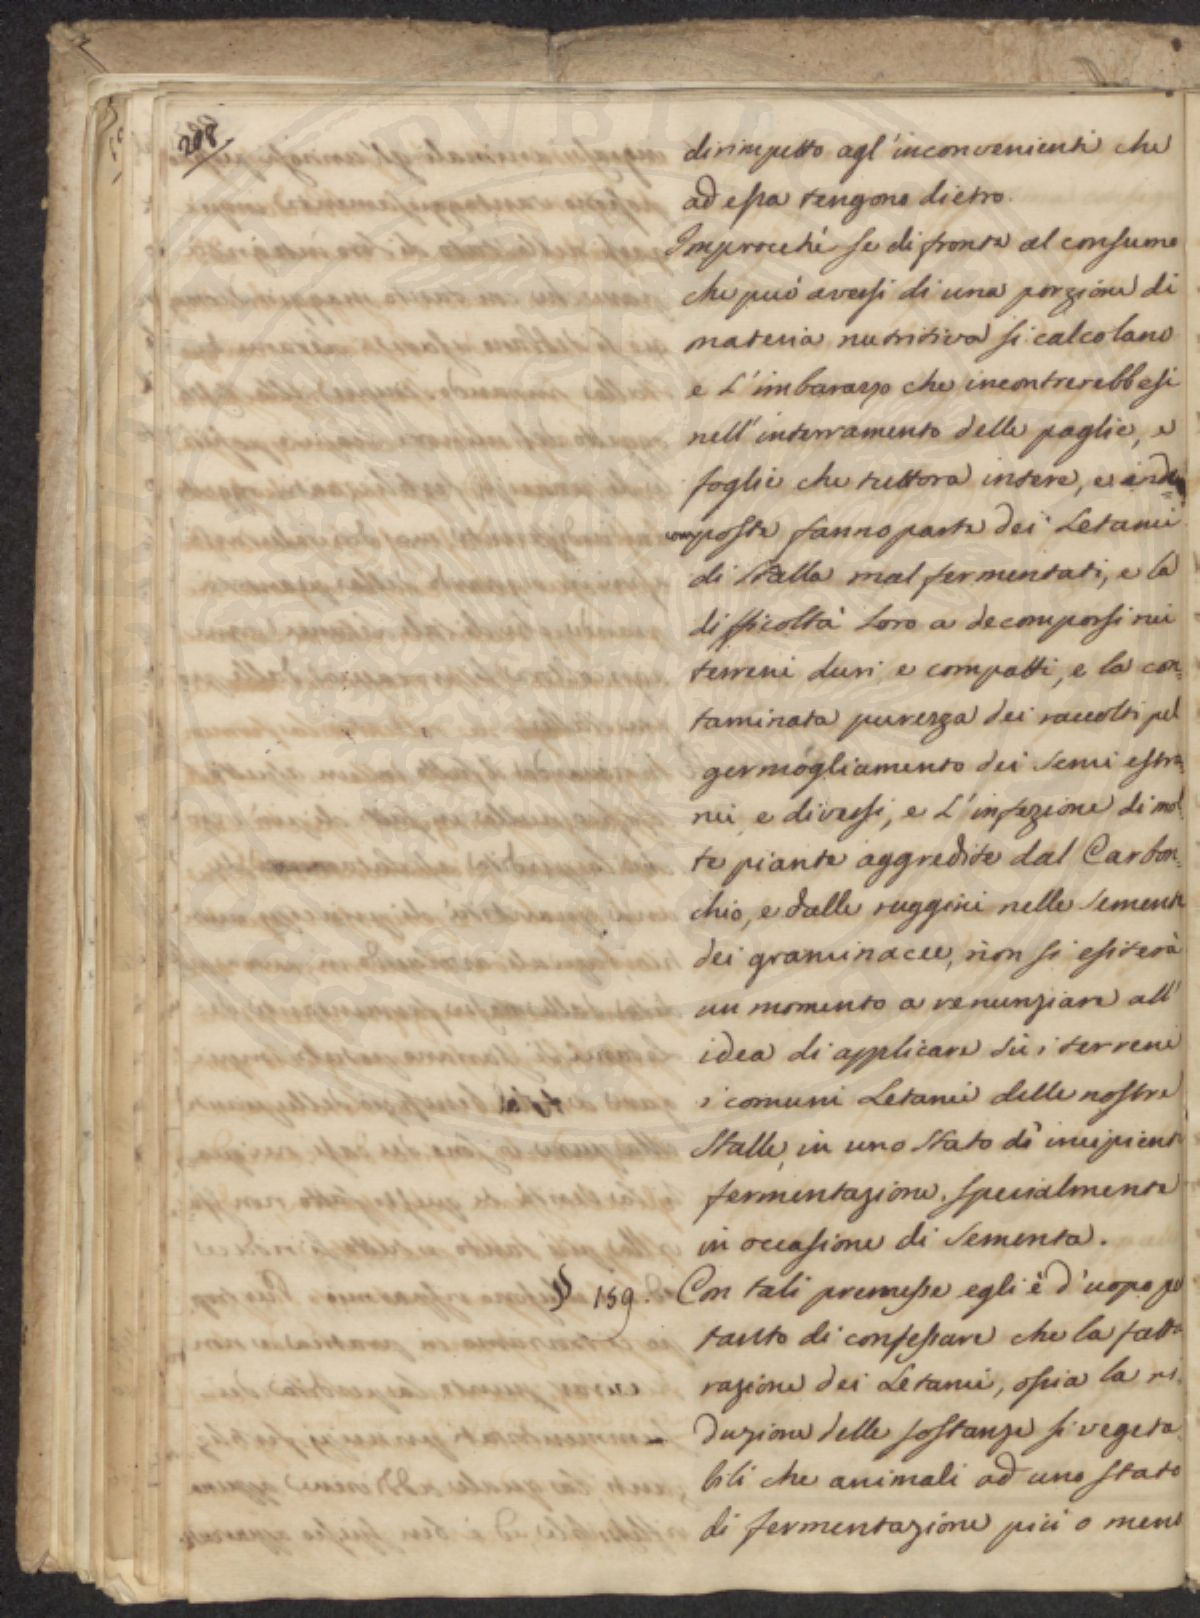 208
dirimpetto agl'inconvenienti che
ad essa tengono dietro.
Improcchè se di fronte al consumo
che può aversi di una porzione di
materia nutritiva si calcolano
e l'imbarazzo che incontrerebbesi
nell'interramento delle paglie, e
foglie che tuttora intere, e inde=
composte fanno parte dei Letami
di Stalla mal fermentati, e la
difficoltà loro a decomporsi nei
terreni duri e compatti, e la con=
taminata purezza dei raccolti pel
germogliamento dei Semi estra=
nei e diversi, e l'infezione di mol=
te piante aggredite dal Carbon=
chio, e dalle ruggini nelle Sementi
dei graminacee, non si esiterà
un momento a renunziare all'
idea di applicare sù i terreni
i comuni Letami delle nostre
Stalle, in uno Stato di incipiente
fermentazione, specialmente
in occasione di Sementa.
§ 159. Con tali premesse egli è d'uopo per
tanto di confessare che la fatta
razione dei Letami, ossia la ri=
duzione delle sostanze si vegeta=
bili che animali ad uno stato
di fermentazione più o meno